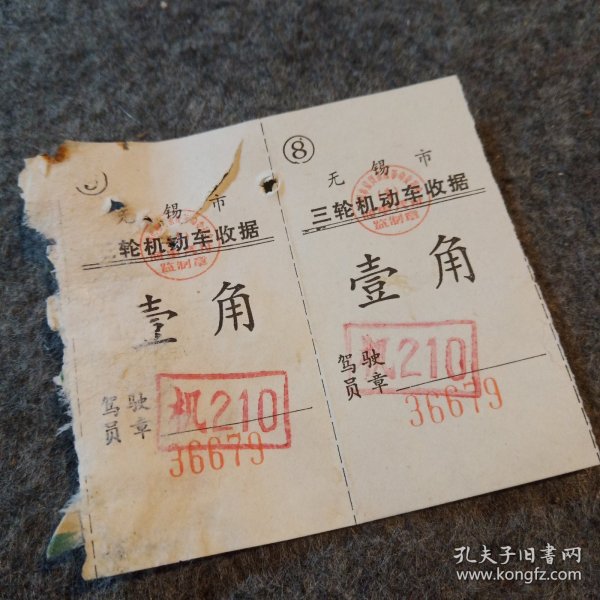 无锡市
三轮机动车收据
监制章
壹角
驾驶
员章
机210
36679
⑧
无锡市
三轮机动车收据
监制章
壹角
驾驶
员章
机210
36679
孔夫子旧书网
www.kongfz.com